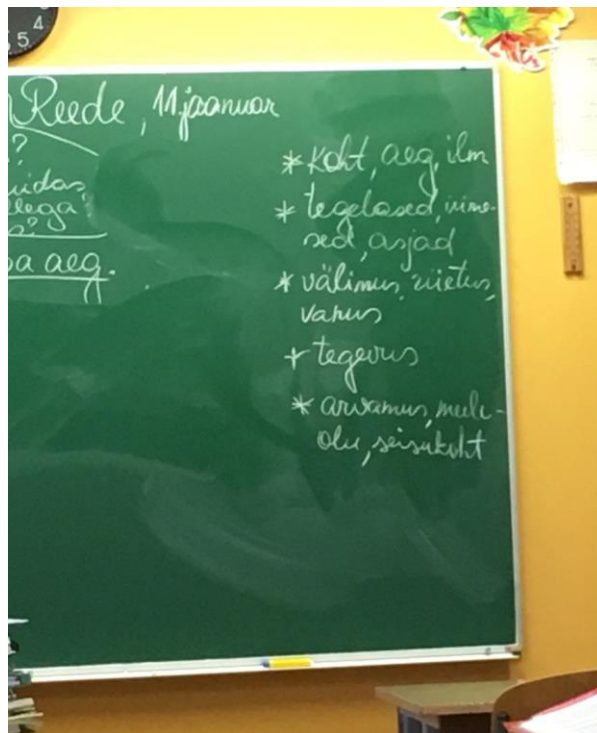 Reede, 11. jaanuar
?
uidas,
llega?
s?
sa aeg.
* Koht, aeg, ilm
* tegelased, inime-
sed, asjad
* välimus, riietus,
vanus
+ tegevus
* arvamus, meele-
olu, seisukoht
5
4